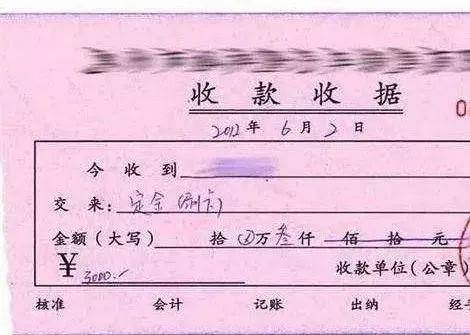 收款收据
0
2012年6月2日
今收到
交来：定金（刷卡）
金额（大写） 拾 ⊗万叁仟 佰 拾 元
¥ 3000.- 收款单位（公章）
核准 会计 记账 出纳 经手